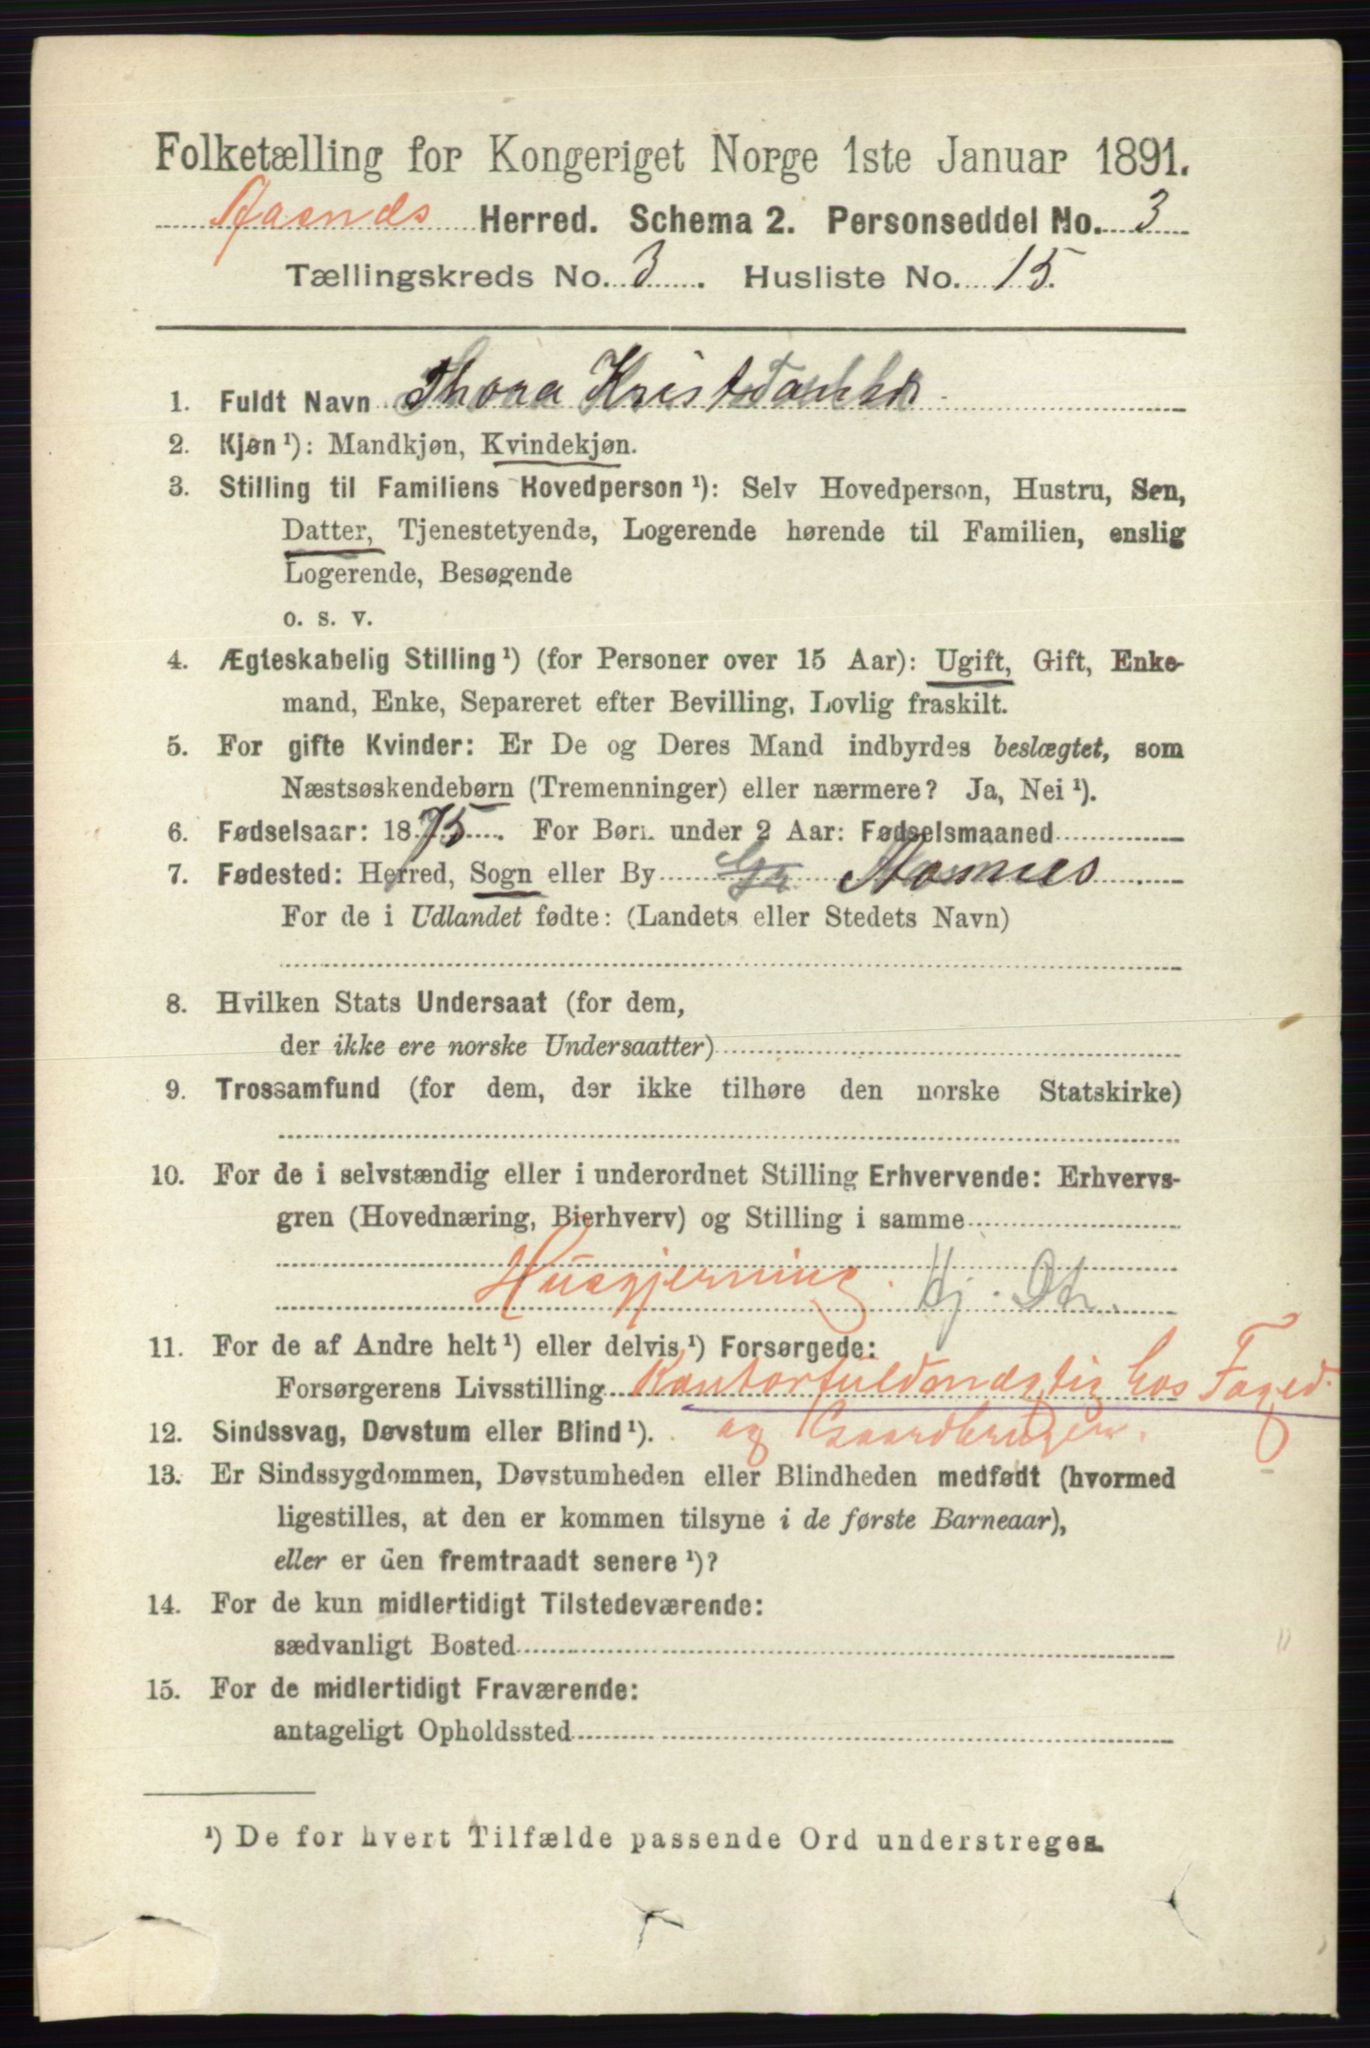 Folketælling for Kongeriget Norge 1ste Januar 1891.
Aasnes Herred. Schema 2. Personseddel No. 3
Tællingskreds No. 3. Husliste No. 15.
1. Fuldt Navn Thora Krist
2. Kjøn ¹): Mandkjøn, Kvindekjøn.
3. Stilling til Familiens Hovedperson ¹): Selv Hovedperson, Hustru, Søn,
Datter, Tjenestetyende, Logerende hørende til Familien, enslig
Logerende, Besøgende
o. s. v.
4. Ægteskabelig Stilling ¹) (for Personer over 15 Aar): Ugift, Gift, Enke-
mand, Enke, Separeret efter Bevilling, Lovlig fraskilt.
5. For gifte Kvinder: Er De og Deres Mand indbyrdes beslægtet, som
Næstsøskendebørn (Tremenninger) eller nærmere? Ja, Nei ¹).
6. Fødselsaar: 1875. For Børn under 2 Aar: Fødselsmaaned
7. Fødested: Herred, Sogn eller By Hasnes
For de i Udlandet fødte: (Landets eller Stedets Navn)
8. Hvilken Stats Undersaat (for dem,
der ikke ere norske Undersaatter)
9. Trossamfund (for dem, der ikke tilhøre den norske Statskirke)
10. For de i selvstændig eller i underordnet Stilling Erhvervende: Erhvervs-
gren (Hovednæring, Bierhverv) og Stilling i samme
Husgjerning. Hj. Dtr.
11. For de af Andre helt ¹) eller delvis ¹) Forsørgede:
Forsørgerens Livsstilling Kontorfuldmægtig hos Foged
12. Sindssvag, Døvstum eller Blind ¹). og Gaardbruger.
13. Er Sindssygdommen, Døvstumheden eller Blindheden medfødt (hvormed
ligestilles, at den er kommen tilsyne i de første Barneaar),
eller er den fremtraadt senere ¹)?
14. For de kun midlertidigt Tilstedeværende:
sædvanligt Bosted
15. For de midlertidigt Fraværende:
antageligt Opholdssted
¹) De for hvert Tilfælde passende Ord understreges.